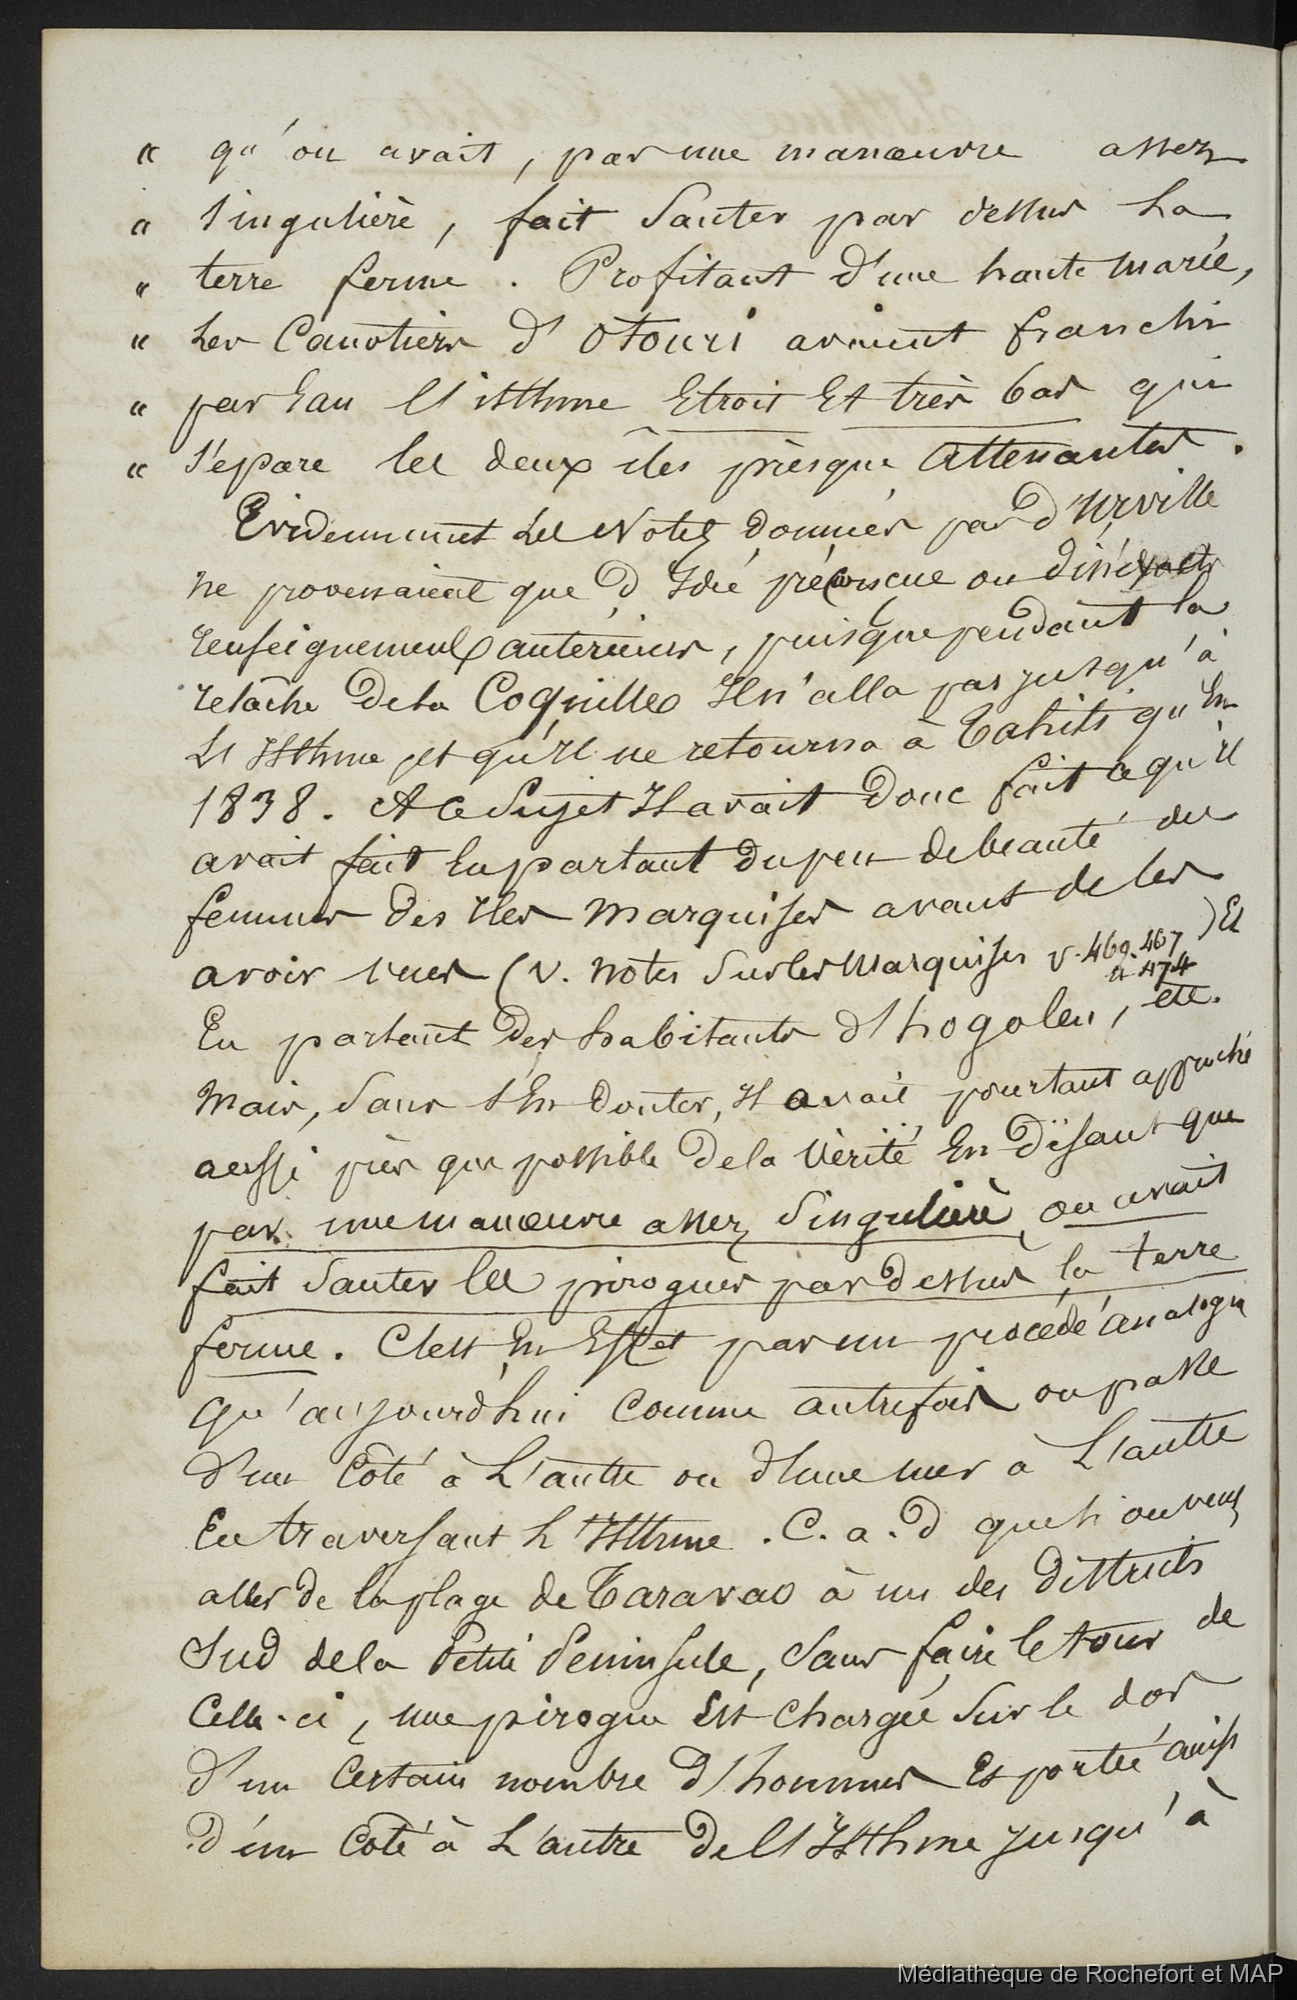 « qu'on avait, par une manœuvre assez
« singulière, fait sauter par dessus la
« terre ferme. Profitant d'une haute marée,
« les Canotiers d'Otouri avaient franchi
« par Eau l'isthme Etroit Et très bas qui
« s'épare les deux îles prèsque attenantes.
Evidemment les Notes données par d'Urville
ne provenaient que d'Idée préconçue ou d'inexacts
renseignements antérieurs, puisque pendant la
relâche de la Coquille Il n'alla pas jusqu'à
L'Isthme et qu'Il ne retourna à Tahiti qu'En
1838. A ce sujet Il avait donc fait ce qu'il
avait fait En parlant du peu de beauté des
femmes des Iles Marquises avant de les
avoir vues (V. notes sur les Marquises V. 469. 467 ) Et
a 474
En parlant des habitants d'hogoleu, etc.
Mais, sans s'En douter, Il avait pourtant approché
aussi près que possible de la Vérité En disant que
par une manœuvre assez singulière on avait
fait sauter les pirogues par dessus la terre
ferme. C'est En Effet par un procédé analogue
qu'aujourd'hui comme autrefois on passe
d'un Côté à L'autre ou d'une mer à L'autre
En traversant L'Isthme. C. a. d que si on veut
aller de la plage de Taravao à un des districts
Sud de la Petite Peninsule, sans faire le tour de
Celle-ci, une pirogue Est chargée sur le dos
d'un Certain nombre d'hommes Et portée ainsi
d'un Côté à L'autre de l'Isthme jusqu'à
Médiathèque de Rochefort et MAP